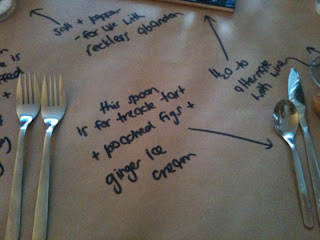 salt + pepper
- for use with
reckless abandon
H2O to
alternate
with wine
this spoon
is for treacle tart
+ poached figs +
ginger ice
cream
is